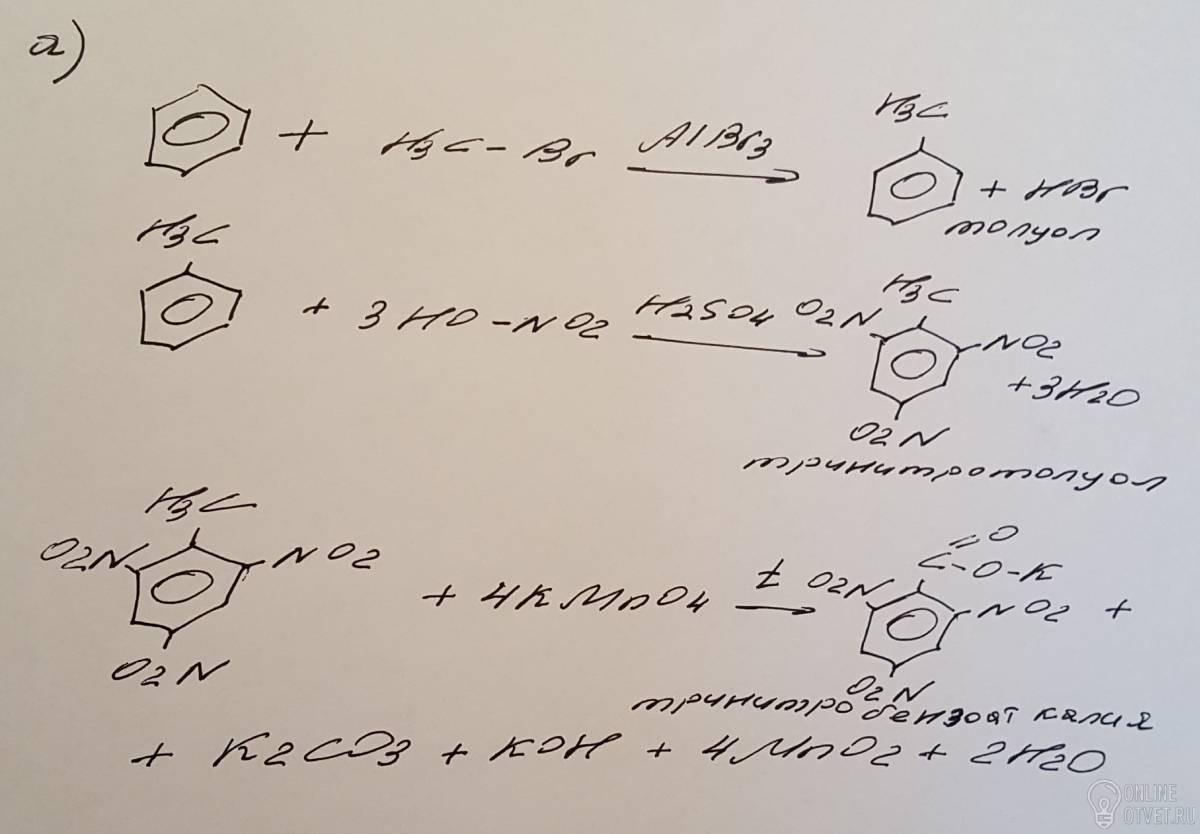 а)
+ H3C – Br AlBr3 → H3C + HBr
толуол
H3C + 3HO – NO2 H2SO4 → O2N H3C NO2 O2N + 3H2O
тринитротолуол
H3C O2N NO2 O2N + 4KMnO4 t → O2N C=O –O–K NO2 O2N +
тринитробензоат калия
+ K2CO3 + KOH + 4MnO2 + 2H2O
ONLINE
OTVET.RU